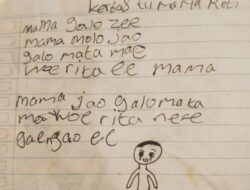 kertas tii mama Reti
mama galo zee
mama molo Jao
galo mata mae
woe rita ee mama
mama jao galo mata
mae woe rita nee
gaergao ee